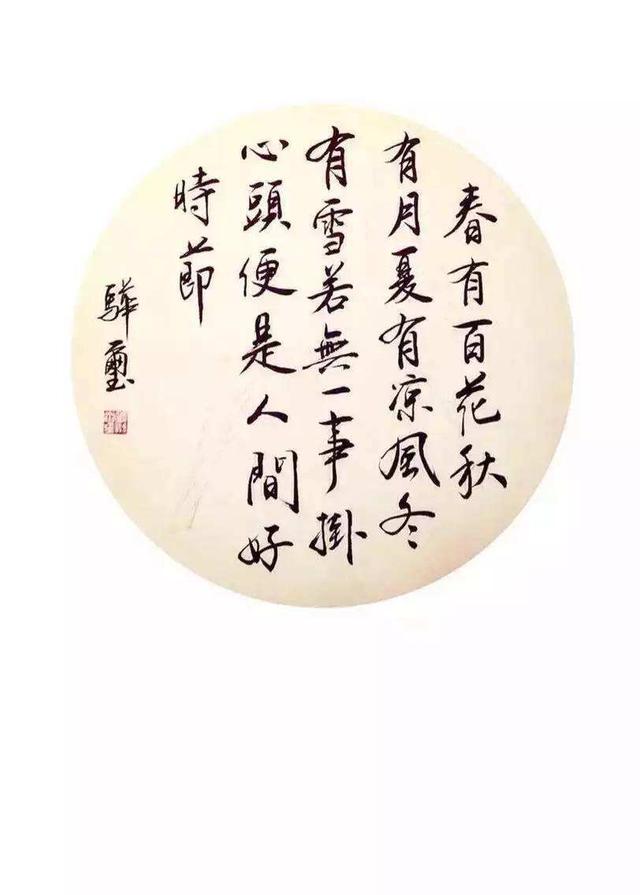 春有百花秋
有月夏有凉風冬
有雪若無一事掛
心頭便是人間好
時節
驊璽